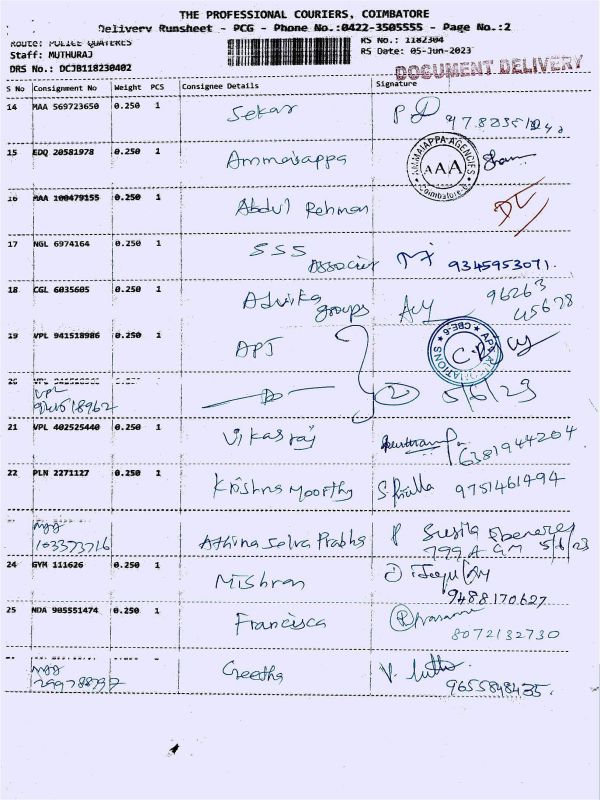 THE PROFESSIONAL COURIERS, COIMBATORE
Delivery Runsheet - PCG - Phone No.:0422-3505555 - Page No.:2
Route: POLICE QUATERES
Staff: MUTHURAJ
DRS No.: DCJB118230402
RS No.: 1182304
RS Date: 05-Jun-2023
DOCUMENT DELIVERY
S No Consignment No Weight PCS Consignee Details Signature
14 MAA 569723650 0.250 1 Sekar
15 EDQ 20581978 0.250 1 Ammaiappa
AMMAIAPPA AGENCIES AAA Coimbatore
16 MAA 100479155 0.250 1 Abdul Rehman DL
17 NGL 6974164 0.250 1 SSS
Associer 9345953071.
18 CGL 6035605 0.250 1 Advika
groups 96263
45678
19 VPL 941518986 0.250 1 APJ
CBE-6
20
VPL
941518962 2 5/6/23
21 VPL 402525440 0.250 1 Vikasraj
6381944204
22 PLN 2271127 0.250 1 Krishna Moorthy 9751461494
103373716 Athina Selva Prabha Susila Ebeneres
799 A GM 5/6/23
24 GYM 111626 0.250 1 Mishran
9488170627
25 NDA 905551474 0.250 1 Francisca
8072132730
Geetha
9655848435.